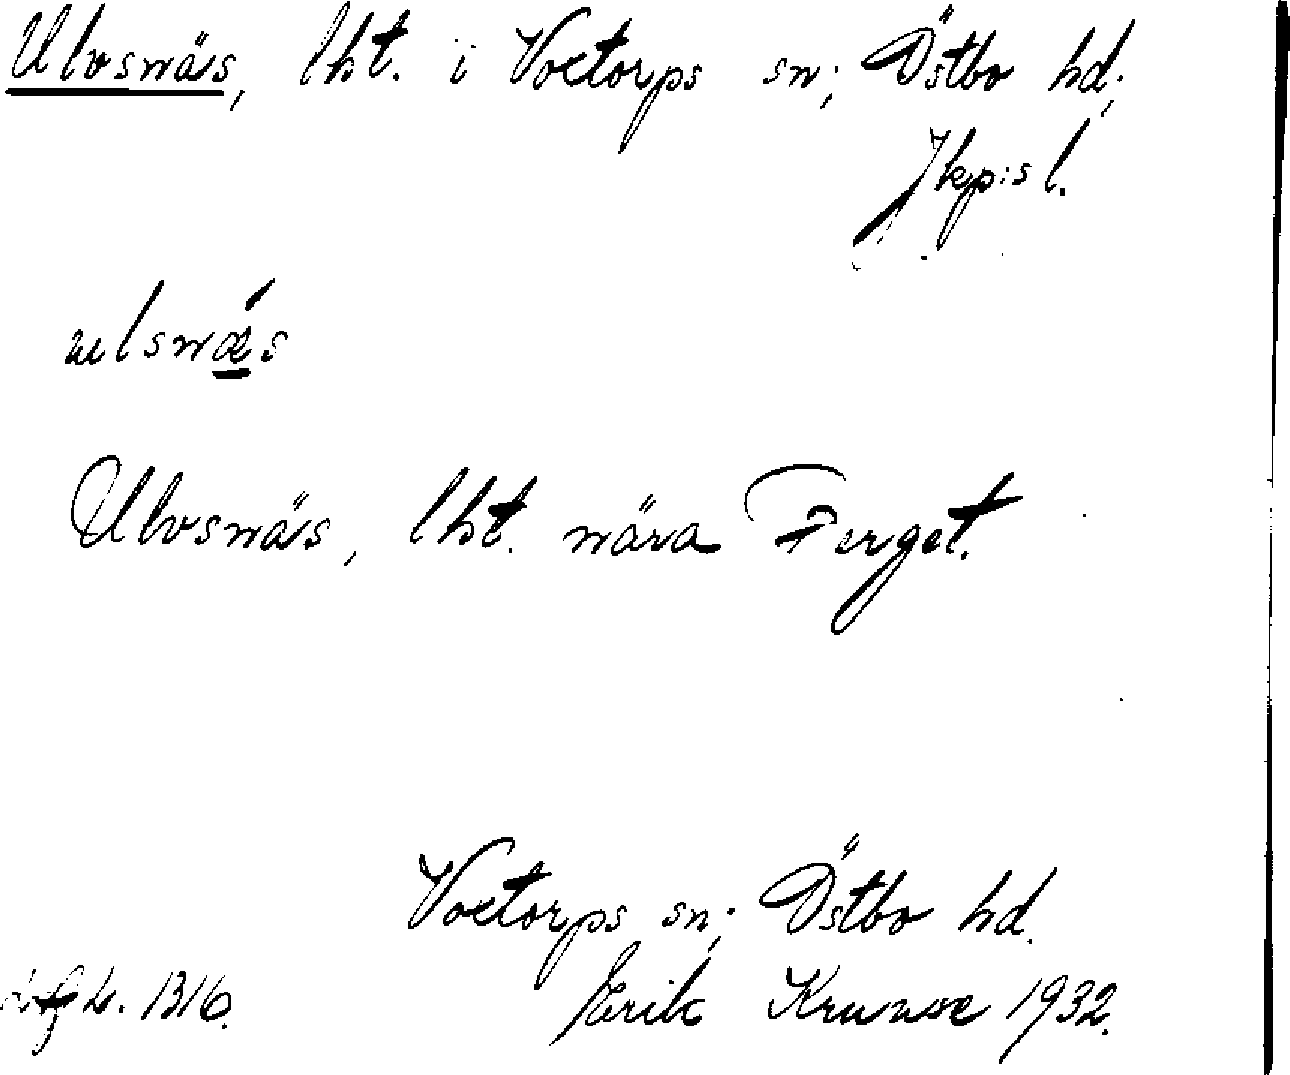 Ulvsnäs, lht. i Voxtorps sn; Östbo hd;
Jkp:s l.
ulsnǽs
Ulvsnäs, lht. nära Ferget.
Voxtorps sn; Östbo hd.
1316.
Erik Krunse 1932.